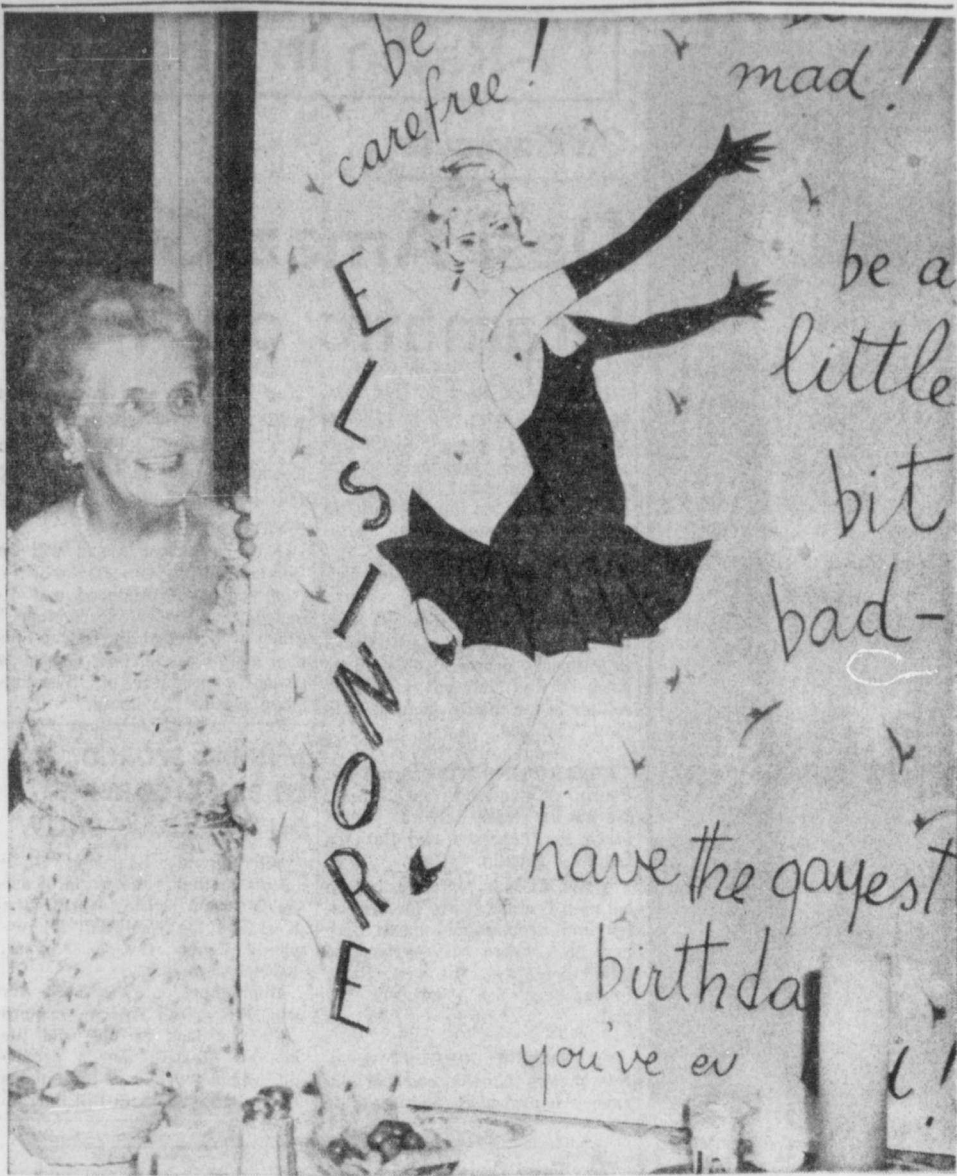 be
carefree!
mad!
ELSINORE
be a
little
bit
bad-
have the gayest
birthda
you've ev
!